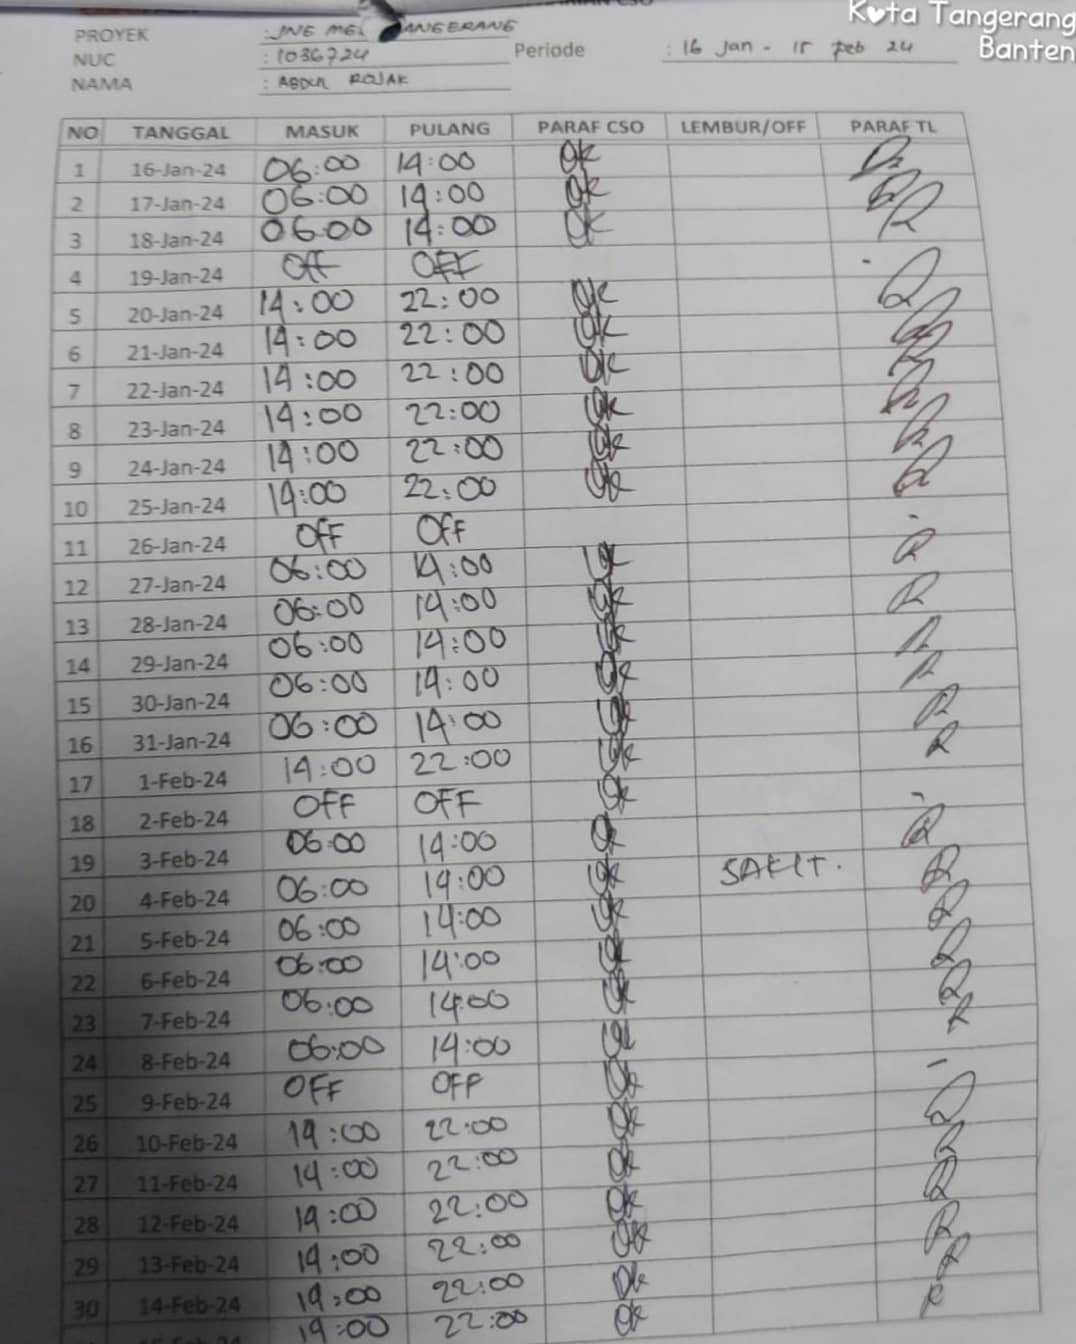 PROYEK : JNE ANGERANG
NUC : 1036724 Periode : 16 Jan - 15 Feb 24
NAMA : ABDUL ROJAK
Kota Tangerang
Banten
NO TANGGAL MASUK PULANG PARAF CSO LEMBUR/OFF PARAF TL
1 16-Jan-24 06:00 14:00 Ok
2 17-Jan-24 06:00 14:00 Ok
3 18-Jan-24 06:00 14:00 Ok
4 19-Jan-24 Off OFF
5 20-Jan-24 14:00 22:00 Ok
6 21-Jan-24 14:00 22:00 Ok
7 22-Jan-24 14:00 22:00 Ok
8 23-Jan-24 14:00 22:00 Ok
9 24-Jan-24 14:00 22:00 Ok
10 25-Jan-24 14:00 22:00 Ok
11 26-Jan-24 OFF OFF
12 27-Jan-24 06:00 14:00 Ok
13 28-Jan-24 06:00 14:00 Ok
14 29-Jan-24 06:00 14:00 Ok
15 30-Jan-24 06:00 14:00 Ok
16 31-Jan-24 06:00 14:00 Ok
17 1-Feb-24 14:00 22:00 Ok
18 2-Feb-24 OFF OFF Ok
19 3-Feb-24 06:00 14:00 Ok
20 4-Feb-24 06:00 14:00 Ok SAKIT.
21 5-Feb-24 06:00 14:00 Ok
22 6-Feb-24 06:00 14:00 Ok
23 7-Feb-24 06:00 14:00 Ok
24 8-Feb-24 06:00 14:00 Ok
25 9-Feb-24 OFF OFF Ok
26 10-Feb-24 14:00 22:00 Ok
27 11-Feb-24 14:00 22:00 Ok
28 12-Feb-24 14:00 22:00 Ok
29 13-Feb-24 14:00 22:00 Ok
30 14-Feb-24 14:00 22:00 Ok
14:00 22:00 Ok